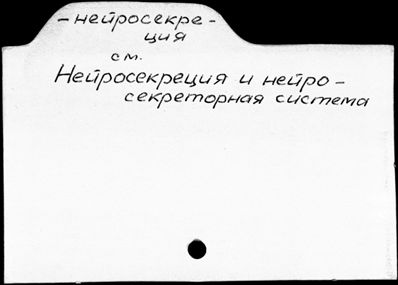 -нейросекре-
ция
см.
Нейросекреция и нейро-
секреторная система